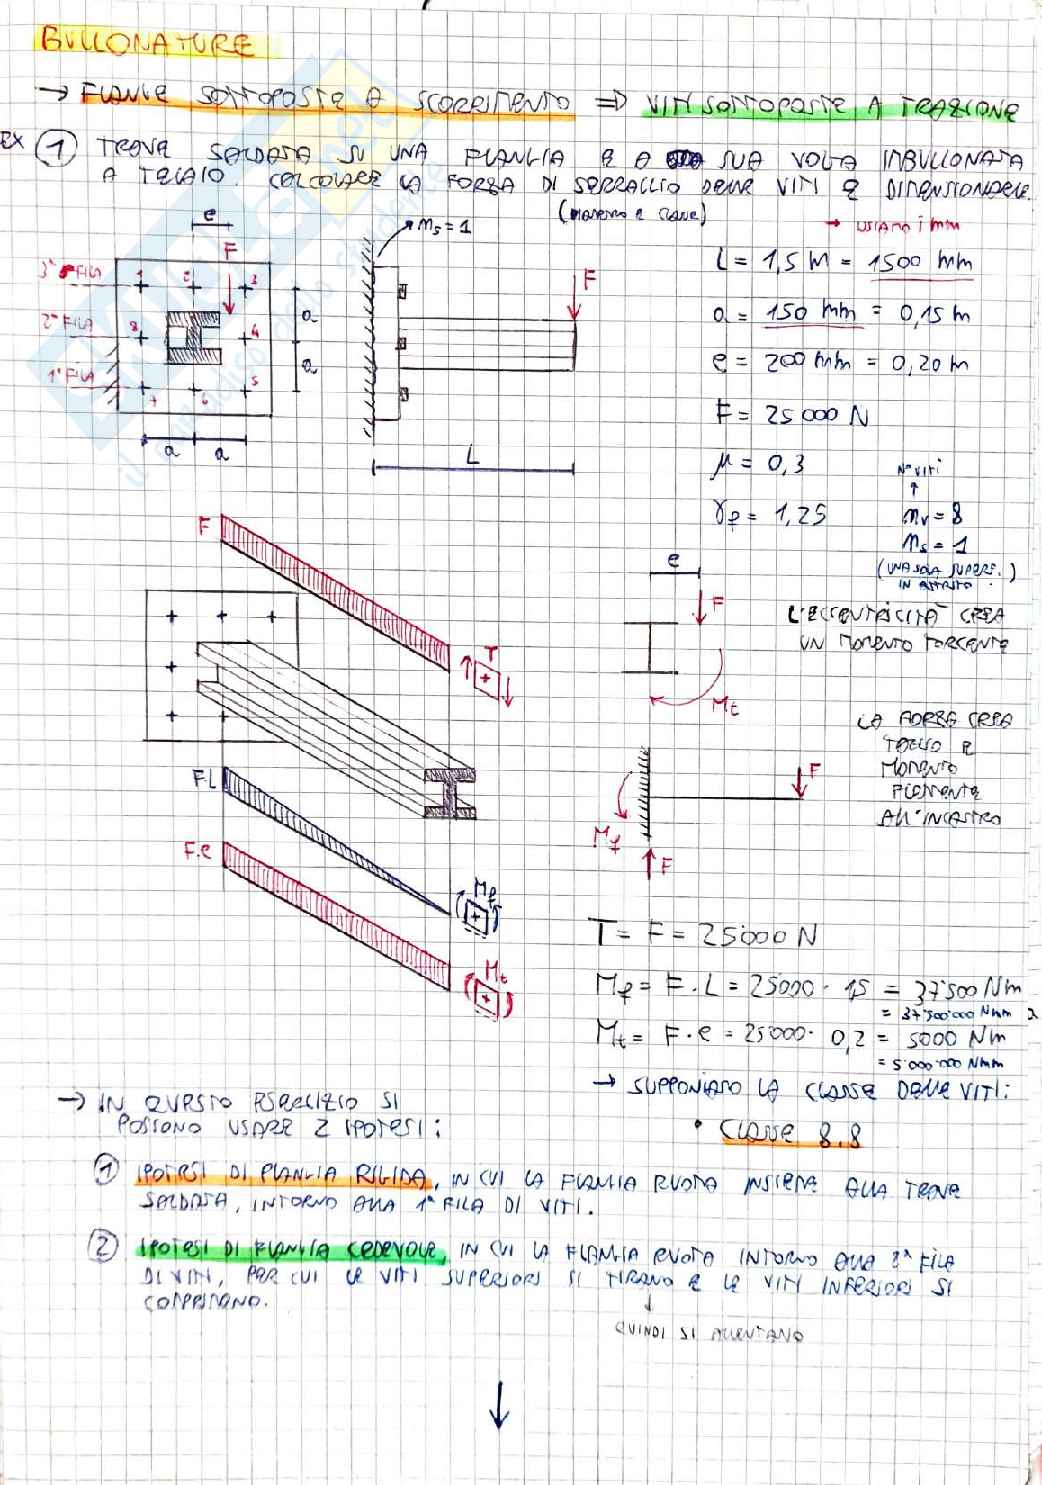 BULLONATURE
→ FLANGE SOTTOPOSTE A SCORRIMENTO ⇒ VITI SOTTOPOSTE A TRAZIONE
EX ① TRAVE SALDATA SU UNA FLANGIA E A SUA VOLTA IMBULLONATA
A TELAIO. CALCOLARE LA FORZA DI SERRAGGIO DELLE VITI E DIMENSIONARLE.
(DIAMETRO E CLASSE)
→ USIAMO i mm
e
F
3ª FILA
1 2 3
2ª FILA
8 4
1ª FILA
7 6 5
a
a
a a
ms = 1
F
L
L = 1,5 M = 1500 mm
a = 150 mm = 0,15 m
e = 200 mm = 0,20 m
F = 25000 N
μ = 0,3
γf = 1,25
N° VITI
↑
mv = 8
ms = 1
(UNA SOLA SUPERF.)
IN ATTRITO
F
T
e
F
Mt
L'ECCENTRICITÀ CREA
UN MOMENTO TORCENTE
LA FORZA CREA
TAGLIO E
MOMENTO
FLETTENTE
ALL'INCASTRO
F
Mf
F
F.L
F.e
Mf
Mt
T = F = 25000 N
Mf = F · L = 25000 · 1,5 = 37'500 Nm
= 37'500'000 Nmm
Mt = F · e = 25000 · 0,2 = 5000 Nm
= 5'000'000 Nmm
→ SUPPONIAMO LA CLASSE DELLE VITI:
• CLASSE 8.8
→ IN QUESTO ESERCIZIO SI
POSSONO USARE 2 IPOTESI:
① IPOTESI DI FLANGIA RIGIDA, IN CUI LA FLANGIA RUOTA INSIEME ALLA TRAVE
SALDATA, INTORNO ALLA 1ª FILA DI VITI.
② IPOTESI DI FLANGIA CEDEVOLE, IN CUI LA FLANGIA RUOTA INTORNO ALLA 2ª FILA
DI VITI, PER CUI LE VITI SUPERIORI SI TIRANO E LE VITI INFERIORI SI
COMPRIMONO.
↓
QUINDI SI ALLENTANO
↓